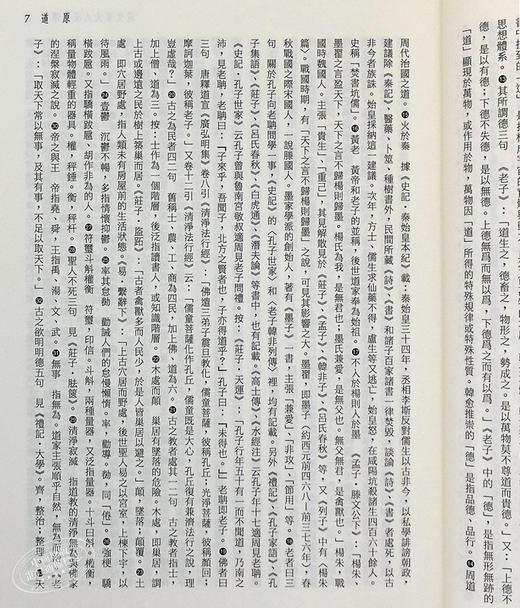 原道 7
思想體系。⑬其所謂德三句 《老子》:「道生之,德畜之,物形之,勢成之。是以萬物莫不尊道而貴德。」又:「上德不
德,是以有德;下德不失德,是以無德。上德無爲而無以爲,下德爲之而有以爲。」《老子》中的「德」,是指無形無跡的
「道」顯現於萬物,或作用於物,萬物因「道」所得的特殊規律或特殊性質。韓愈推崇的「德」是指品德、品行。⑭周道
周代治國之道。⑮火於秦 據《史記·秦始皇本紀》載:秦始皇三十四年,丞相李斯反對儒生以古非今,以私學誹謗朝政,
建議除《秦記》、醫藥、卜筮、種樹書外,民間所藏《詩》、《書》和諸子百家書一律焚毀,談論《詩》、《書》者處死,以古
非今者族誅。始皇採納這一建議。次年,方士、儒生求仙藥不得,盧生等又逃亡,始皇怒,在咸陽坑殺諸生四百六十餘人。
史稱「焚書坑儒」。⑯黃老 黃帝和老子的並稱,後世道家奉為始祖。⑰不入於楊則入於墨 《孟子·滕文公下》:「楊朱、
墨翟之言盈天下,天下之言不歸楊則歸墨。楊氏為我,是無君也;墨氏兼愛,是無父也。無父無君,是禽獸也。」楊朱,戰
國時魏國人。主張「貴生」、「重己」,其見解散見於《莊子》、《孟子》、《韓非子》、《呂氏春秋》等,又《列子》中有《楊朱
篇》。戰國時期,有「天下之言不歸楊則歸墨」之說,可見其影響之大。墨翟,即墨子(約西元前四六八—前三七六年),春
秋戰國之際宋國人,一說滕國人。墨家學派的創始人,著有《墨子》一書,主張「兼愛」、「非攻」、「節用」等。⑱老者曰三
句 關於孔子向老聃問學一事,《史記》的〈孔子世家〉和〈老子韓非列傳〉裡,均有記載。另外《禮記》、《孔子家語》、《孔
子集語》、《莊子》、《呂氏春秋》、《白虎通》、《潛夫論》等書中,也有記載。《高士傳》、《水經注》云孔子年十七適周見老聃。
《史記·孔子世家》云孔子曾與魯南宮敬叔適周見老子問禮。按:《莊子·天運》:「孔子行年五十有一而不聞道,乃南之
沛,見老聃。老聃曰:『子來乎,吾聞子,北方之賢者也。子亦得道乎?』孔子曰:『未得也。』」老聃即老子。⑲佛者曰
三句 唐釋道宣《廣弘明集》卷八引《清淨法行經》:「佛遣三弟子震旦教化,儒童菩薩,彼稱孔丘;光淨菩薩,彼稱顏回;
摩訶迦葉,彼稱老子。」又卷十二引《清淨法行經》云:「儒童菩薩化作孔丘,儒童既是大心,孔丘復有兼濟法行之說,理
豈虛哉?」⑳古之為民者四二句 舊稱士、農、工、商為四民,加上佛、道為六。㉑古之教者處其一二句 古之教者指士,
加上僧、道為三。按:士作為一個階層,後泛指讀書人,或知識階層。㉒木處而顛 巢居有墜落的危險。木處,即巢居,謂
上古或邊遠之民於樹上築巢而居。《莊子·盜跖》:「古者禽獸多而人民少,於是人皆巢居以避之。」顛,墜落;顛覆。㉓土
處 即穴居野處,指人類未有房屋前的生活狀態。《易·繫辭下》:「上古穴居而野處,後世聖人易之以宮室,上棟下宇,以
待風雨。」㉔壹鬱 沉鬱不暢,多指情懷抑鬱。㉕率其怠勌 勸誡人們的怠慢懶惰。率,勸導。勌,同「倦」。㉖強梗 驕
橫跋扈。又指驕橫跋扈、胡作非為的人。㉗符璽斗斛權衡 符璽,印信。斗斛,兩種量器,又泛指量器。十斗曰斛。權衡,
稱量物體輕重的器具。權,秤錘。衡,秤杆。㉘聖人不死三句 見《莊子·胠篋》。㉙清淨寂滅 指道教的清淨無為與佛家
的涅槃寂滅之說。㉚帝之與王 帝指堯、舜,王指禹、湯、文、武。㉛無事 指無為。道家主張順乎自然,無為而治。《老
子》:「取天下常以無事,及其有事,不足以取天下。」㉜古之欲明明德五句 見《禮記·大學》。齊,整治;整理。㉝天